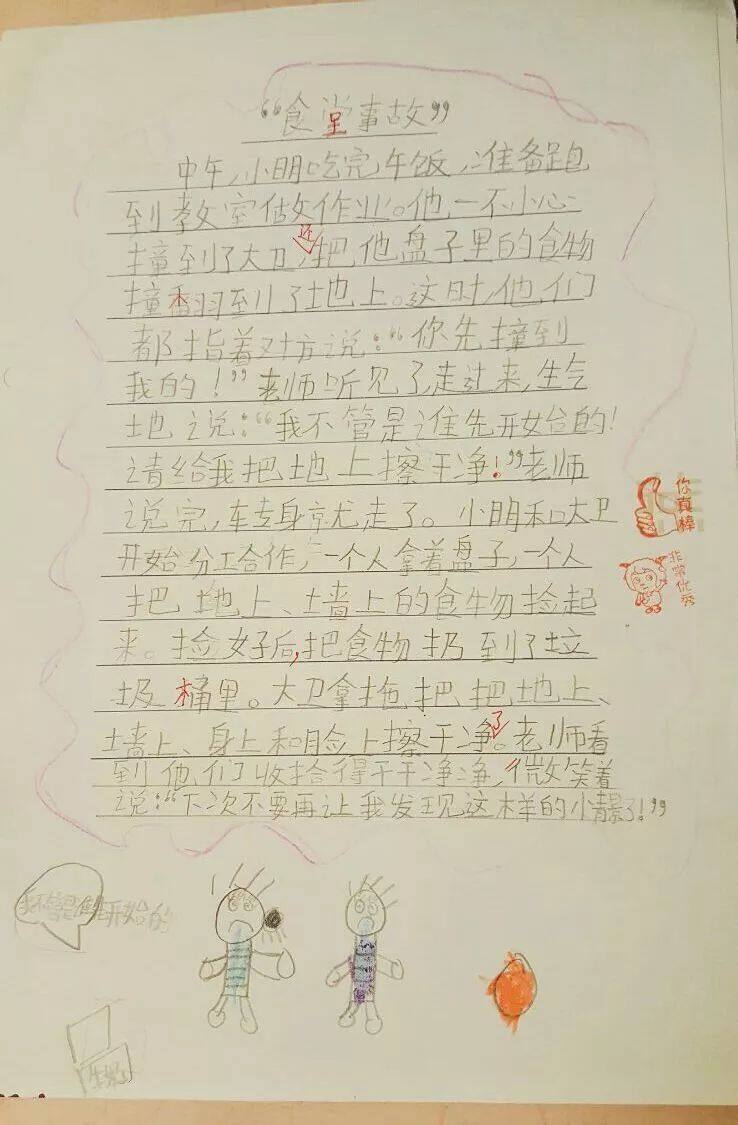 “食堂事故”
中午,小明吃完午饭,准备跑
到教室做作业。他一不小心
撞到了大卫,还把他盘子里的食物
撞翻到了地上。这时,他们
都指着对方说:“你先撞到
我的!”老师听见了,走过来,生气
地说:“我不管是谁先开始的!
请给我把地上擦干净!”老师
说完,转身就走了。小明和大卫
开始分工合作,一个人拿着盘子,一个人
把地上、墙上的食物捡起
来。捡好后,把食物扔到了垃
圾桶里。大卫拿拖把把地上、
墙上、身上和脸上擦干净了。老师看
到他们收拾得干干净净,微笑着
说:“下次不要再让我发现这样的小

你真棒
非常优秀
我不管是谁开始的
牛奶